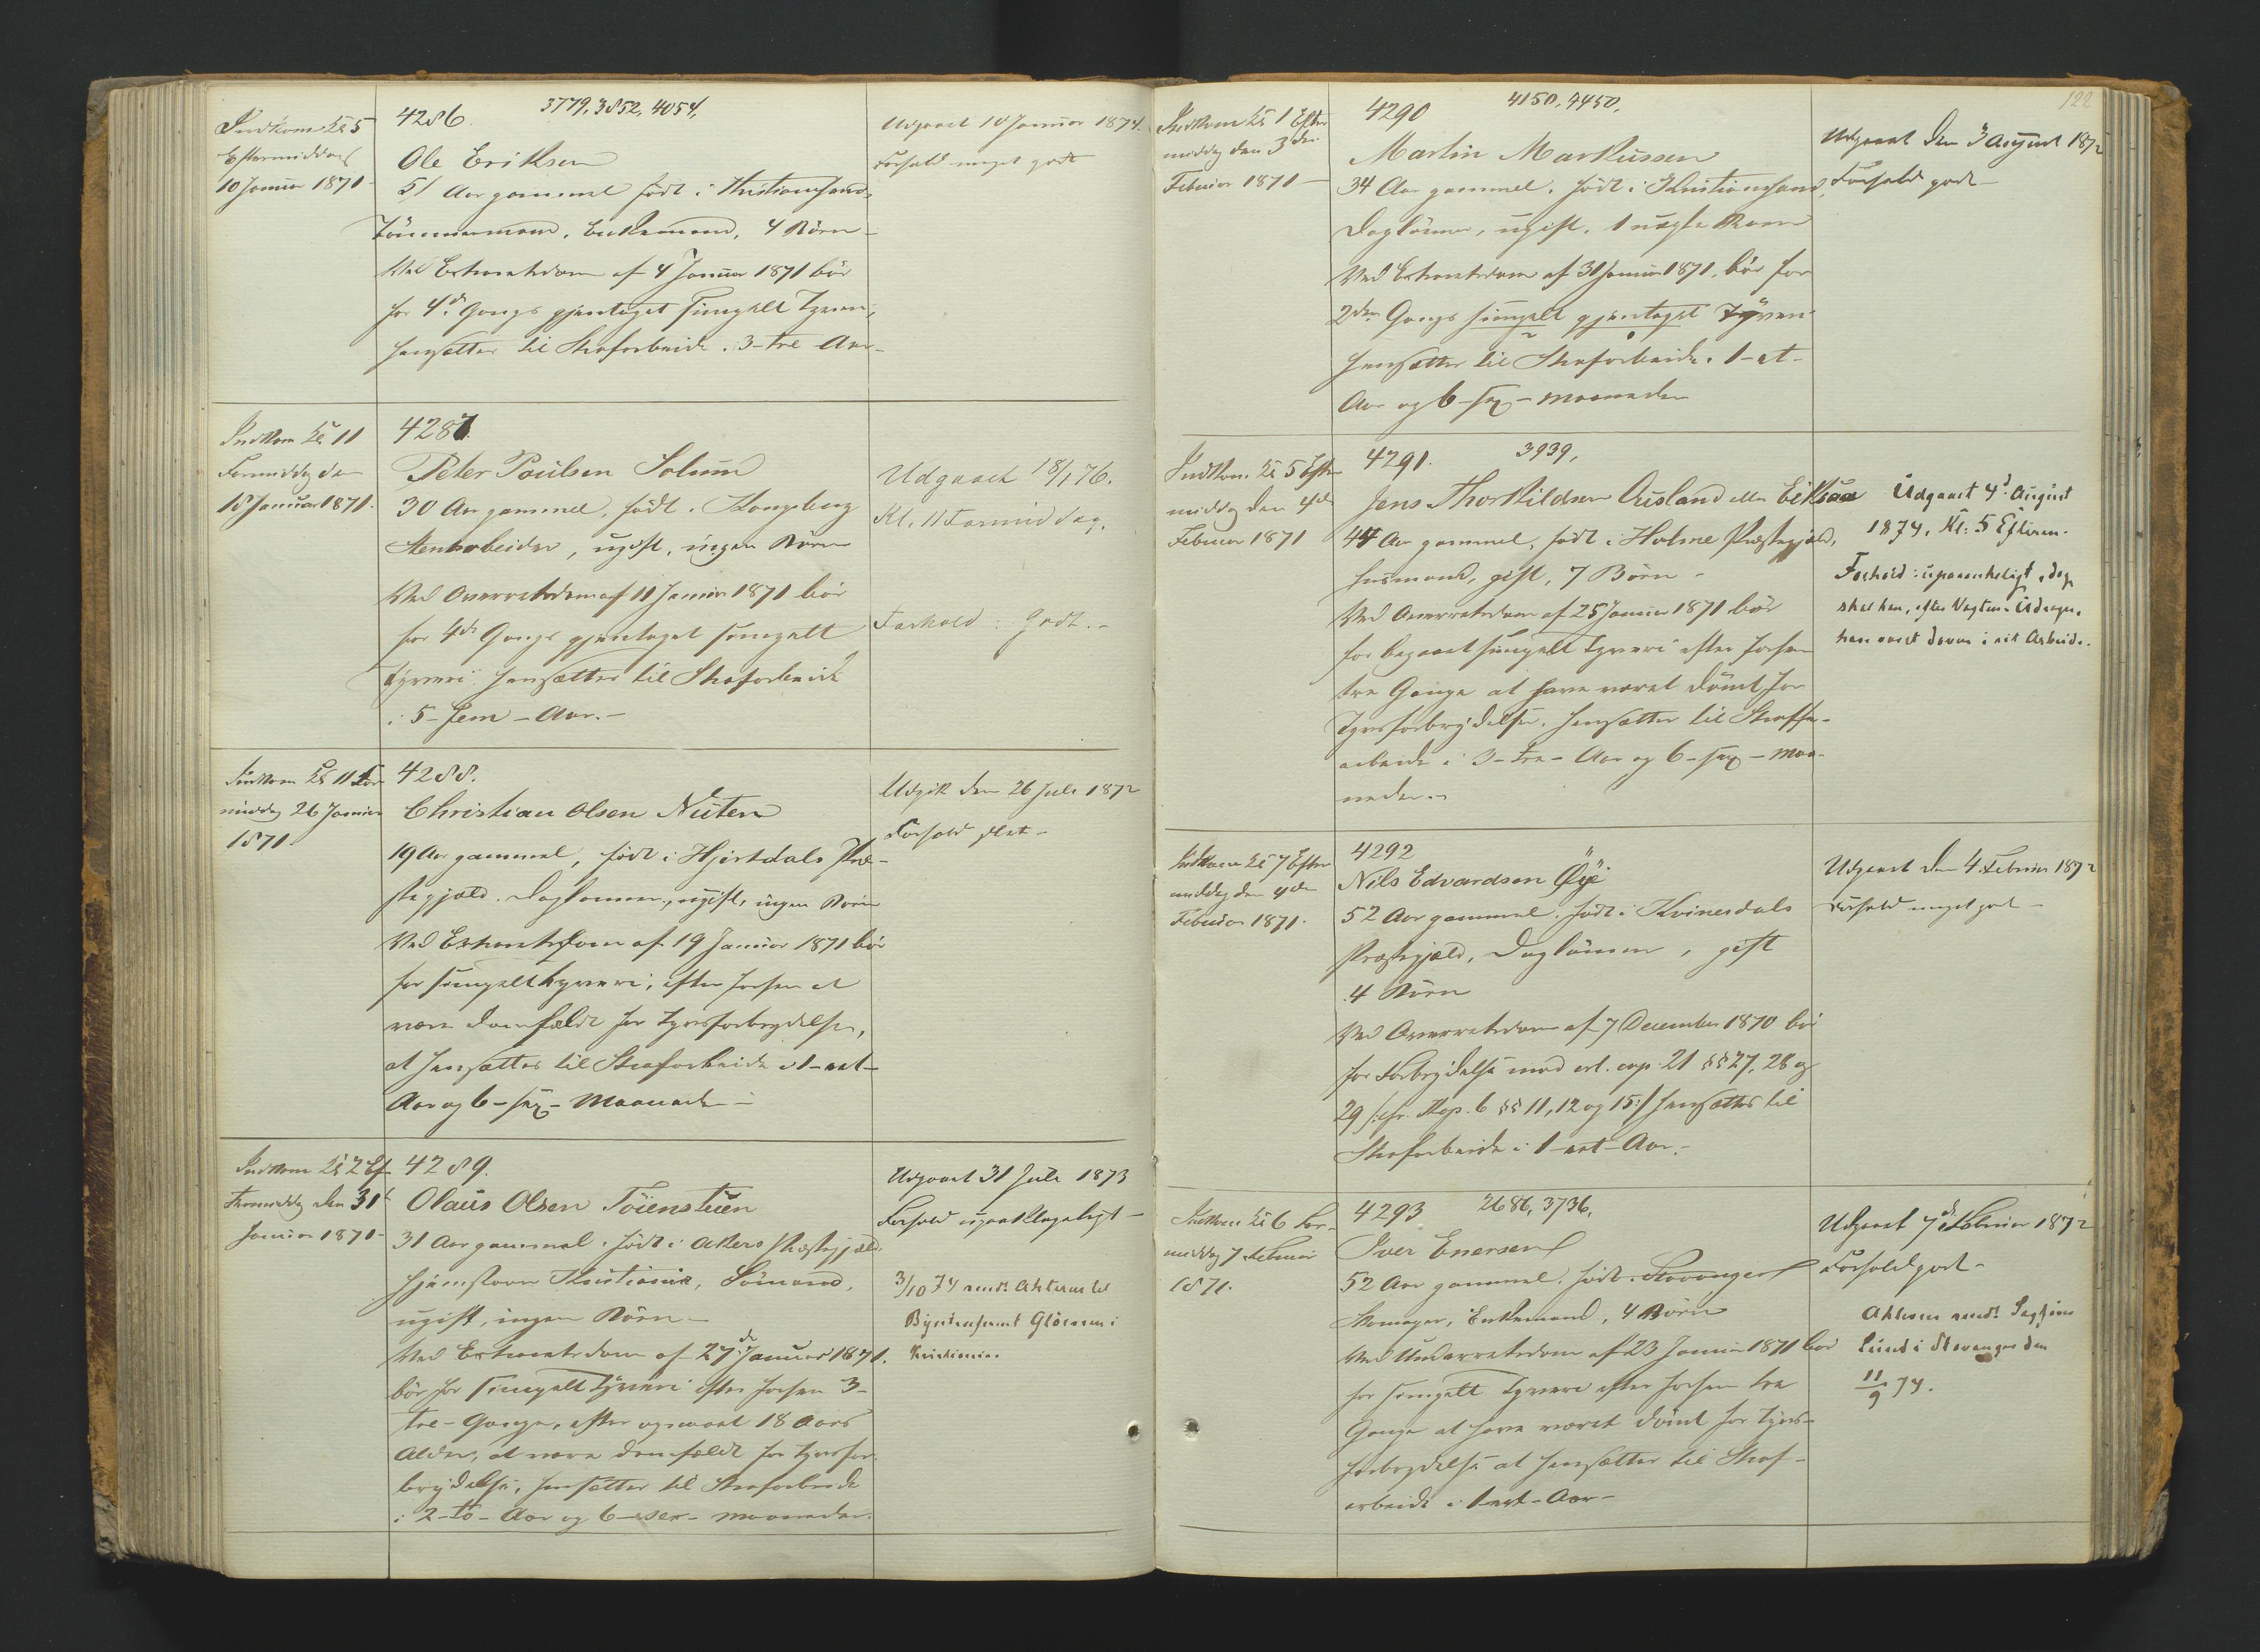 Indkom Kl 5
Eftermiddag
10 Januar 1871
4286.
3779, 3852, 4054,
Ole Eriksen
51 Aar gammel født i Kristiansand,
Tömmermand, Enkemand, 4 Börn -
Ved Extraretsdom af 4 Januar 1871 bör
for 4de Gangs gjentaget simpelt Tyveri,
hensættes til Strafarbeide i 3 - tre Aar -
Udgaaet 10 Januar 1874.
Forhold meget godt
Indkom Kl 11
Formiddag den
18 Januar 1871.
4287.
Peter Paulsen Solum
30 Aar gammel, født i Kongsberg
Stenarbeider, ugift, ingen Börn
Ved Overretsdom af 11 Januar 1871 bör
for 4de Gangs gjentaget simpelt
Tyveri hensættes til Strafarbeide
i 5 - fem - Aar. -
Udgaaet 18/1 76.
Kl. 11 Formiddag.
Forhold: Godt. -
Indkom Kl 11 For
middag 26 Januar
1871.
4288.
Christian Olsen Nuten
19 Aar gammel, født i Hjertdals Præ-
stegjæld. Daglönner, ugift, ingen Börn
Ved Extraretsdom af 19 Januar 1871 bör
for simpelt Tyveri, efter forhen at
være domfældt for Tyvsforbrydelse,
at hensættes til Strafarbeide i 1 - eet -
Aar og 6 - sex - Maaneder -
Udgik den 26 Juli 1872
Forhold slet -
Indkom Kl 2 Ef-
termiddag den 31t
Januar 1871 -
4289.
Olaus Olsen Töienstuen
31 Aar gammel. født i Akers Præstegjæld.
Hjemstavn Kristiania, Sömand,
ugift, ingen Börn -
Ved Extraretsdom af 27de Januar 1871.
bör for simpelt Tyveri efter forhen 3 -
tre - Gange, efter opnaaet 18 Aars
Alder, at være domfældt for Tyvsfor
brydelse, hensættes til Strafarbeide
i 2 - to - Aar og 6 - sex - maaneder.
Udgaaet 31 Juli 1873
Forhold upaaklageligt -
3/10 74 sendt Akterne til
Kristiania.
122
Indkom Kl 1 Efter
middag den 3die
Februar 1871 -
4290
4150, 4450,
Martin Markussen
34 Aar gammel. født i Kristianssand,
Daglönner, ugift, 1 uægte Barn
Ved Extraretsdom af 31 Januar 1871, bör for
2den Gangs simpelt gjentaget Tyveri
hensættes til Strafarbeide i 1 - et -
Aar og 6 - sex - maaneder
Udgaaet den 3 August 1872
Forhold godt -
Indkom Kl 5 Efter
middag den 4de
Februar 1871
4291.
3939,
Jens Thorkildsen Ausland eller Eiksaa
44 Aar gammel, født i Holme Præstegjæld,
Husmand, gift, 7 Börn -
Ved Overretsdom af 25 Januar 1871 bör
for begaaet simpelt Tyveri efter forhen
tre Gange at have været dömt for
Tyvsforbrydelse, hensættes til Straffe-
arbeide i 3 - tre - Aar og 6 - sex - Maa-
neder. -
Udgaaet 4de August
1874, Kl: 5 Efterm.
Forhold: upaaankeligt, dog
skal han, efter Vagtens Udsagn,
have været doven i sit Arbeide.
Indkom Kl 7 Efter
middag den 4de
Februar 1871.
4292
Nils Edvardsen Øye
52 Aar gammel. født i Kvinesdals
Præstegjæld, Daglönner, gift
4 Börn
Ved Overretsdom af 7 December 1870 bör
for Forbrydelse mod crl. cap. 21 §§ 27, 28 og
29 /: cfr. Kap. 6 §§ 11, 12 og 15 :/ hensættes til
Strafarbeide i 1 - eet - Aar. -
Udgaaet den 4. Februar 1872
Forhold meget godt -
Indkom Kl 6 For-
middag 7 Februar
1871.
4293
2686, 3736,
Iver Enersen
52 Aar gammel. født i Stavanger
Skomager, Enkemand, 4 Börn
Ved Underretsdom af 23 Januar 1871 bör
for simpelt Tyveri efter forhen tre
Gange at have været dömt for Tyvs-
forbrydelse at hensættes til Straf-
arbeide i 1 - eet - Aar -
Udgaaet 7de Februar 1872
Forhold godt -
Akterne sendt
Lund i Stavanger den
11/9 74.